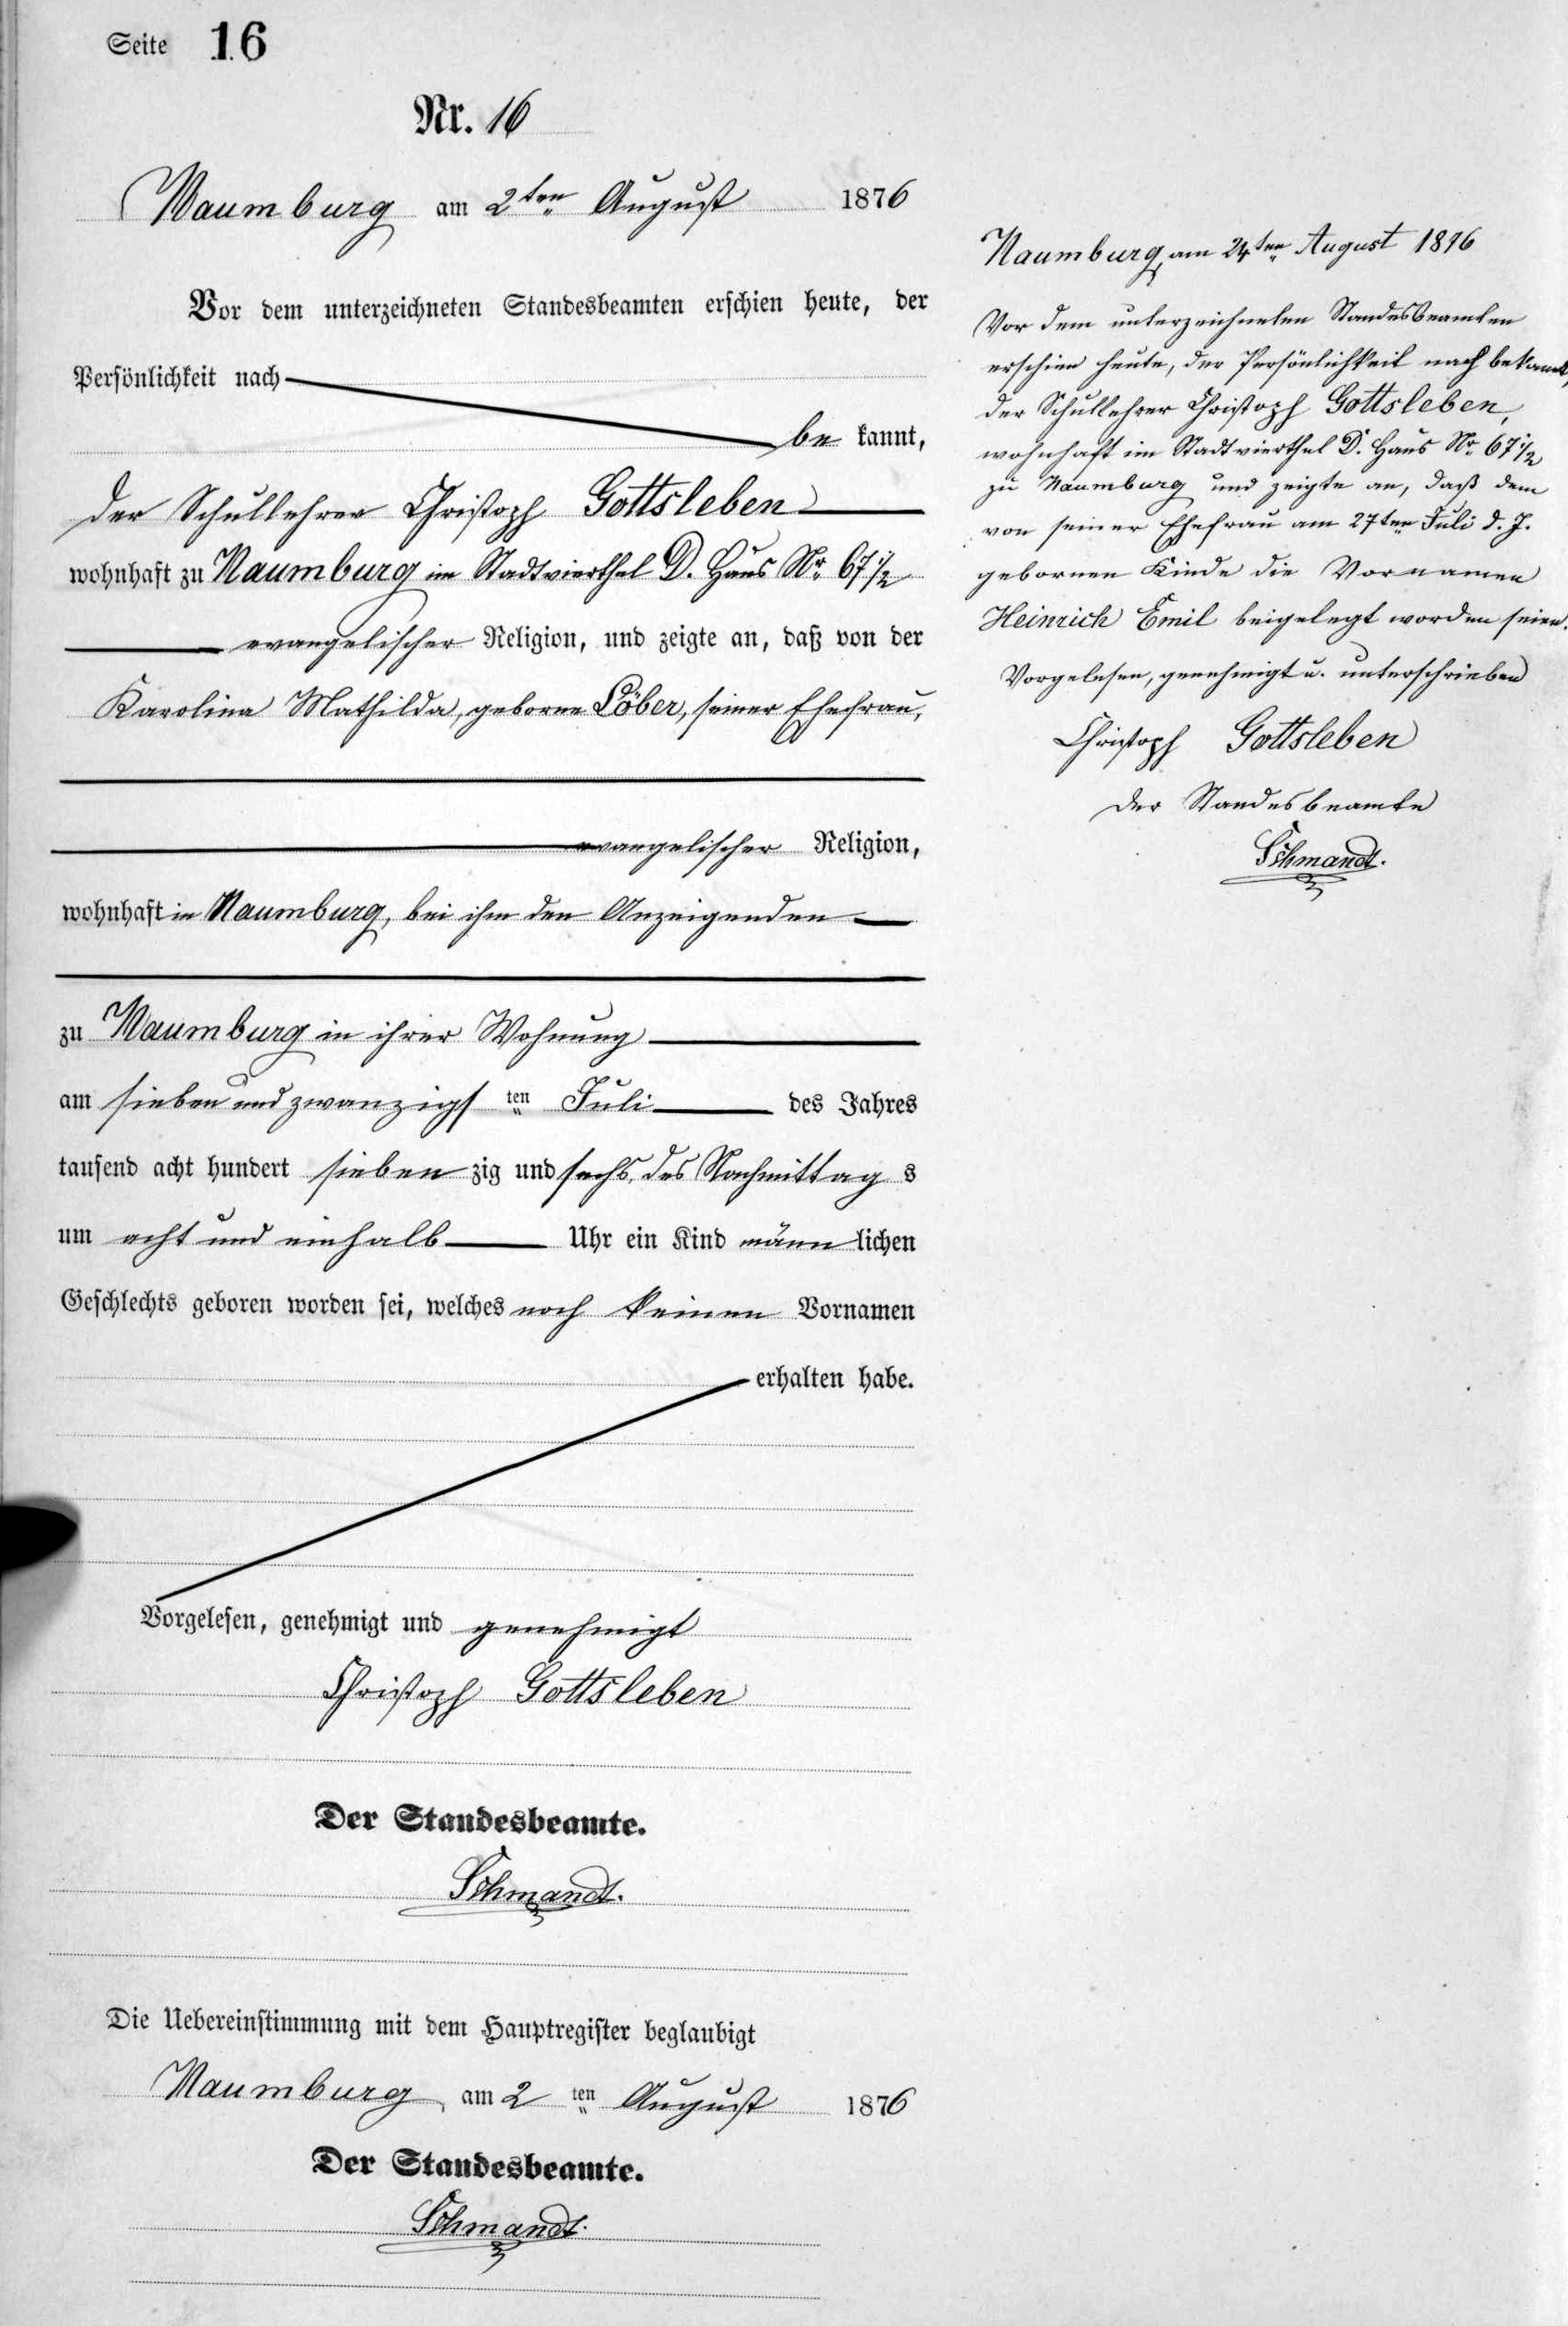 Seite 16
Nr. 16
Naumburg am 2ten August 1876
Vor dem unterzeichneten Standesbeamten erschien heute, der
Persönlichkeit nach
be kannt,
der Schullehrer Christoph Gottsleben
wohnhaft zu Naumburg im Stadtvierthel D. Haus Nr. 67 1/2
evangelischer Religion, und zeigte an, daß von der
Karolina Mathilda, geborne Löber, seiner Ehefrau,
evangelischer Religion,
wohnhaft in Naumburg, bei ihm den Anzeigenden
zu Naumburg in ihrer Wohnung
am sieben und zwanzigs ten Juli des Jahres
tausend acht hundert sieben zig und sechs, des Nachmittag s
um acht und einhalb Uhr ein Kind männ lichen
Geschlechts geboren worden sei, welches noch keinen Vornamen
erhalten habe.
Vorgelesen, genehmigt und genehmigt
Christoph Gottsleben
Der Standesbeamte.
Schmandt.
Die Uebereinstimmung mit dem Hauptregister beglaubigt
Naumburg, am 2 ten August 1876
Der Standesbeamte.
Schmandt.
Naumburg, am 24ten August 1876
Vor dem unterzeichneten Standesbeamten
erschien heute, der Persönlichkeit nach bekannt,
der Schullehrer Christoph Gottsleben,
wohnhaft im Stadtvierthel D. Haus Nr. 67 1/2
zu Naumburg und zeigte an, daß dem
von seiner Ehefrau am 27ten Juli d. J.
gebornen Kinde die Vornamen
Heinrich Emil beigelegt worden seien.
Vorgelesen, genehmigt u. unterschrieben
Christoph Gottsleben
Der Standesbeamte
Schmandt.